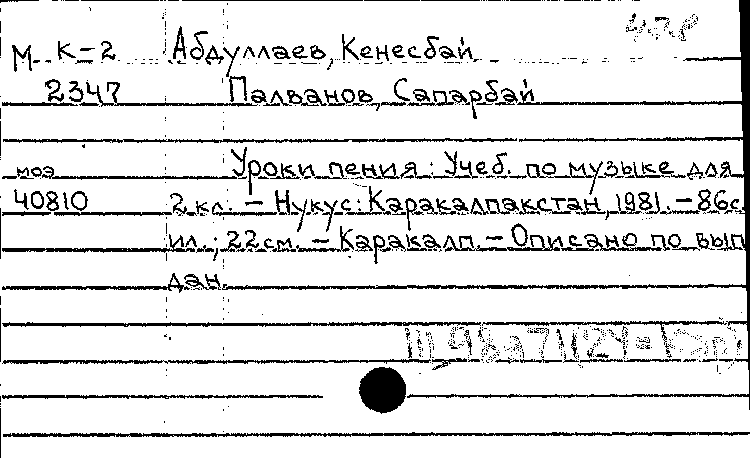 М К-2 Абдуллаев, Кенесбай
2347 Палванов, Сапарбай
моэ Уроки пения : Учеб. по музыке для
40810 2 кл. – Нукус: Каракалпакстан, 1981. – 86с.
ил.; 22см. – Каракалп. – Описано по вып
дан.